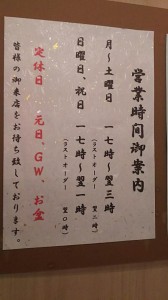 営業時間御案内
月～土曜日　一七時～翌三時
（ラストオーダー　翌二時）
日曜日、祝日　一七時～翌一時
（ラストオーダー　翌〇時）
定休日　元日、GW、お盆
皆様の御来店をお待ち致しております。